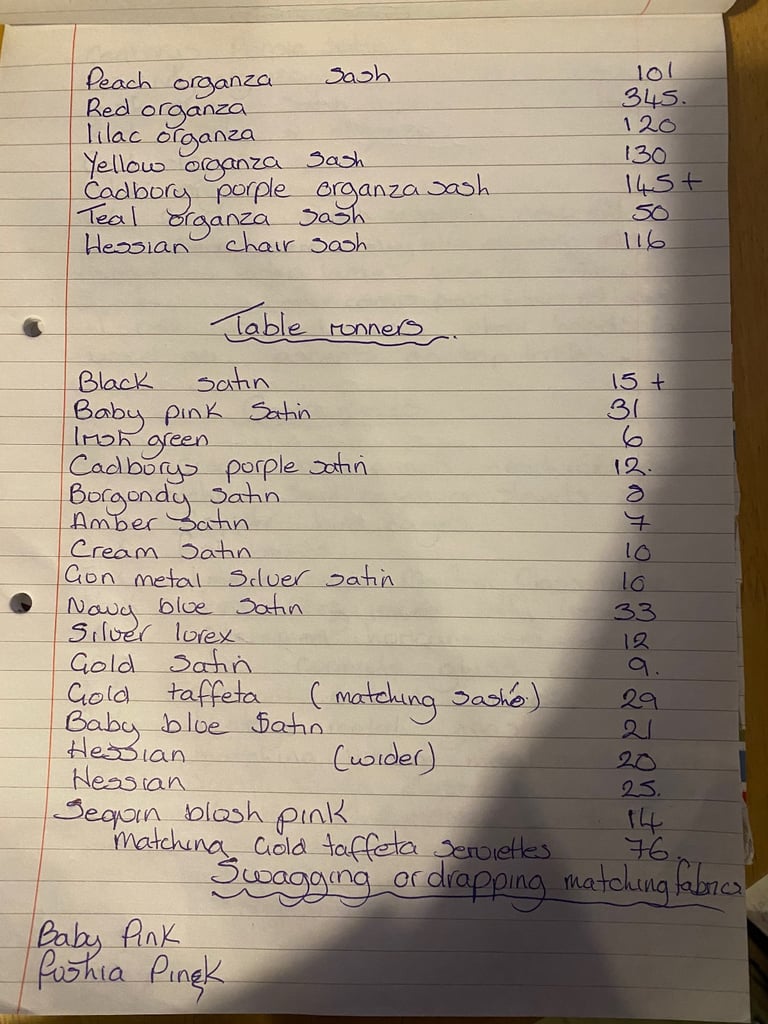 Peach organza sash 101
Red organza 345.
lilac organza 120
Yellow organza sash 130
Cadbury purple organza sash 145+
Teal organza sash 50
Hessian chair sash 116
Table runners.
Black satin 15+
Baby pink Satin 31
Irish green 6
Cadburys purple satin 12.
Burgundy satin 8
Amber satin 7
Cream satin 10
Gun metal silver satin 10
Navy blue satin 33
Silver lurex 12
Gold satin 9.
Gold taffeta (matching sashes) 29
Baby blue Satin 21
Hessian (wider) 20
Hessian 25.
Sequin blush pink 14
matching Gold taffeta serviettes 76.
Swagging or drapping matching fabrics
Baby Pink
fushia Pink